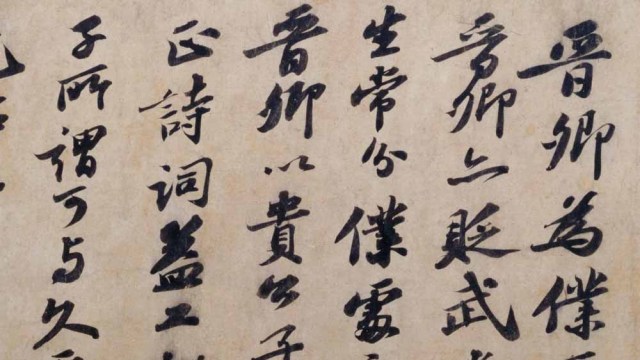 晉卿為僕
晉卿亦貶武
生常分僕處
晉卿以貴公子
正詩詞益工
子所謂可与久